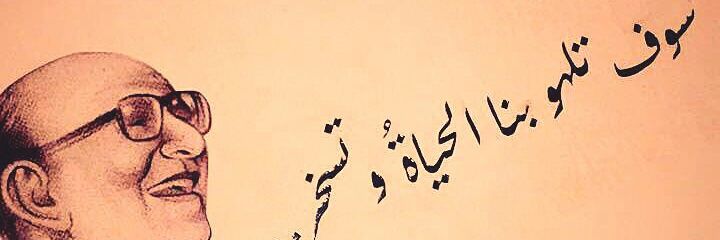 سوف تلهو بنا الحياةُ و تسخر